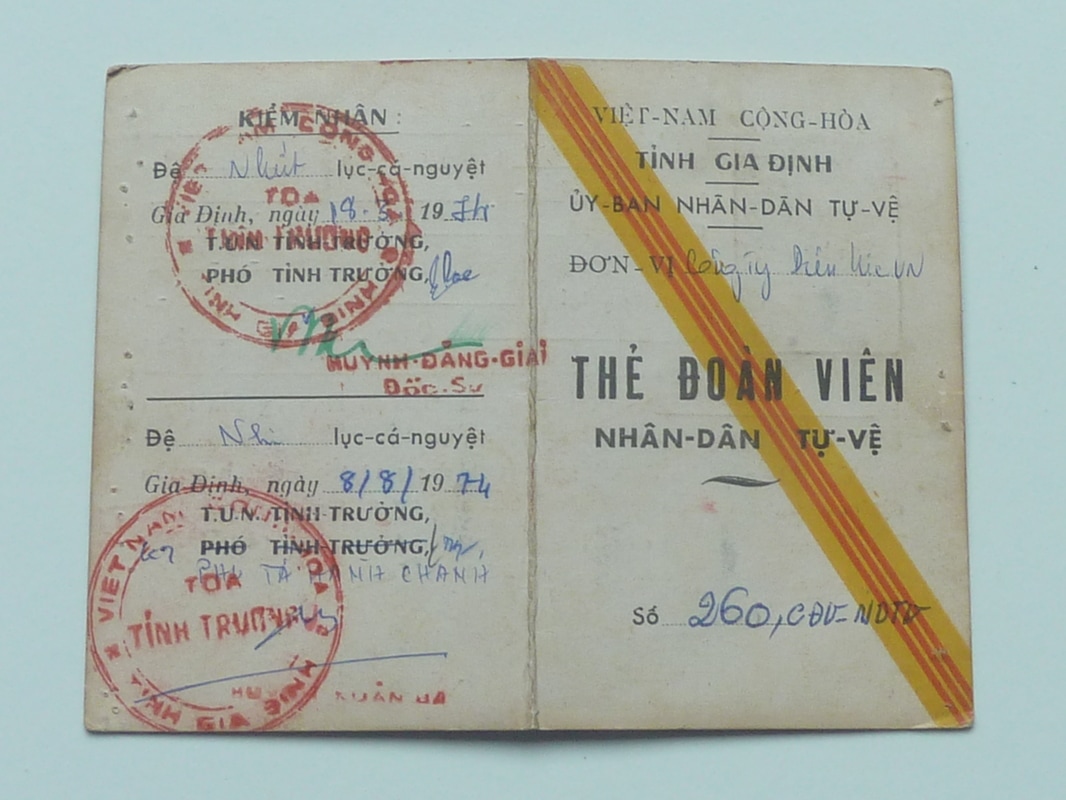 KIỂM NHẬN :
Đệ Nhứt lục-cá-nguyệt
Gia Định, ngày 18-3 1974
T.U.N. TỈNH-TRƯỞNG,
PHÓ TỈNH TRƯỞNG,
HUỲNH-ĐĂNG-GIAI
Đốc-Sự
Đệ Nhị lục-cá-nguyệt
Gia Định, ngày 8/8/1974
T.U.N. TỈNH-TRƯỞNG,
PHÓ TỈNH-TRƯỞNG,
PHỤ TÁ HÀNH CHÁNH
VIỆT NAM CỘNG HÒA
TÒA
TỈNH TRƯỞNG
TỈNH GIA ĐỊNH
XUÂN
VIỆT NAM CỘNG HÒA
TÒA
TỈNH TRƯỞNG
TỈNH GIA ĐỊNH
VIỆT-NAM CỘNG-HÒA
TỈNH GIA ĐỊNH
ỦY-BAN NHÂN-DÂN TỰ-VỆ
ĐƠN-VỊ Công Ty Điện lực VN
THẺ ĐOÀN VIÊN
NHÂN-DÂN TỰ-VỆ
Số 260, CĐV-NDTV